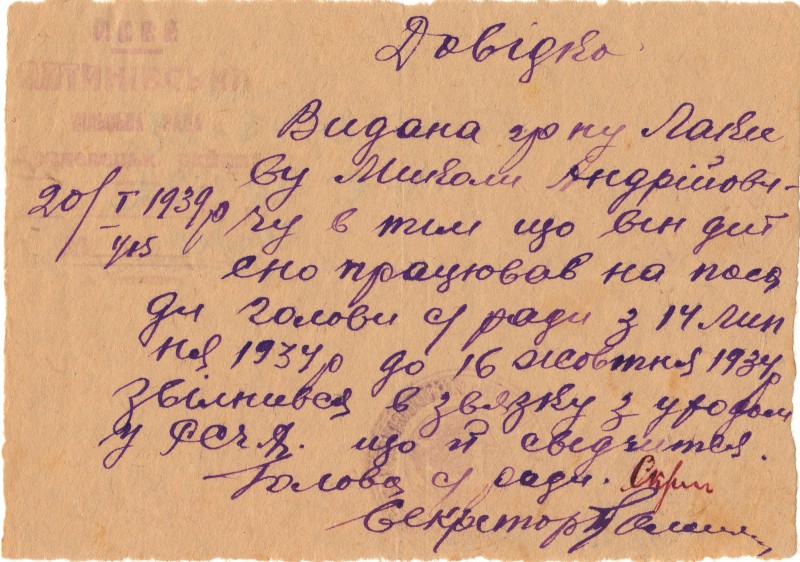 Довідка
Видана гр ну Лаки
ву Миколи Андрійови-
20/I 1939р
чу в тім що він дій
сно працював на поса
ди Голови с/ ради з 14 Лип
ня 1934р до 16 жовтня 1934р
звільнився в звязку з
у РСЧА. що й свідчится.
Голова с/ ради.
Секретар